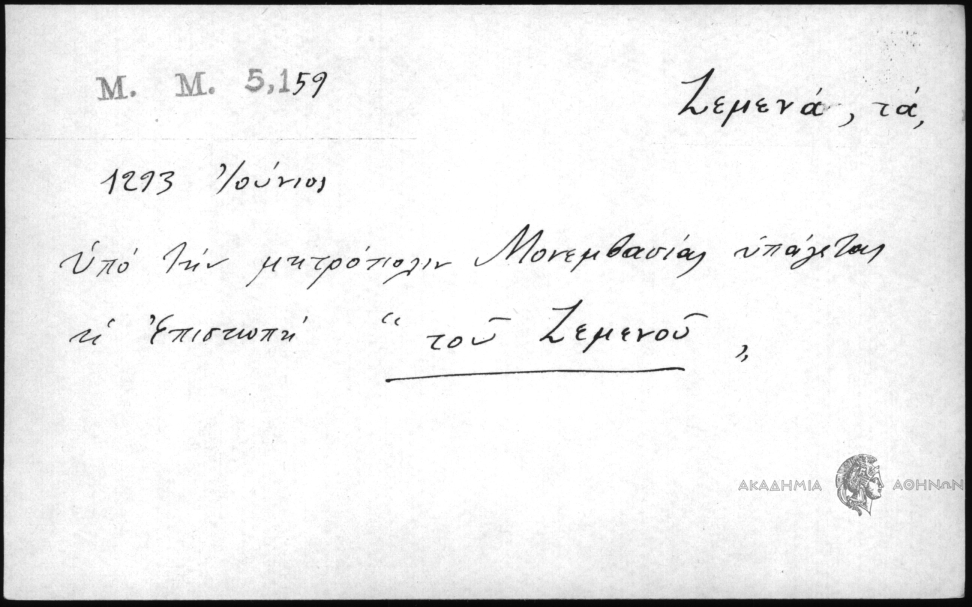 Μ. Μ. 5,159
Ζεμενά, τά,
1293 Ἰούνιος
Ὑπό τήν μητρόπολιν Μονεμβασίας ὑπάγεται
ἡ Ἐπισκοπή “ τοῦ Ζεμενοῦ „
ΑΚΑΔΗΜΙΑ ΑΘΗΝΩΝ